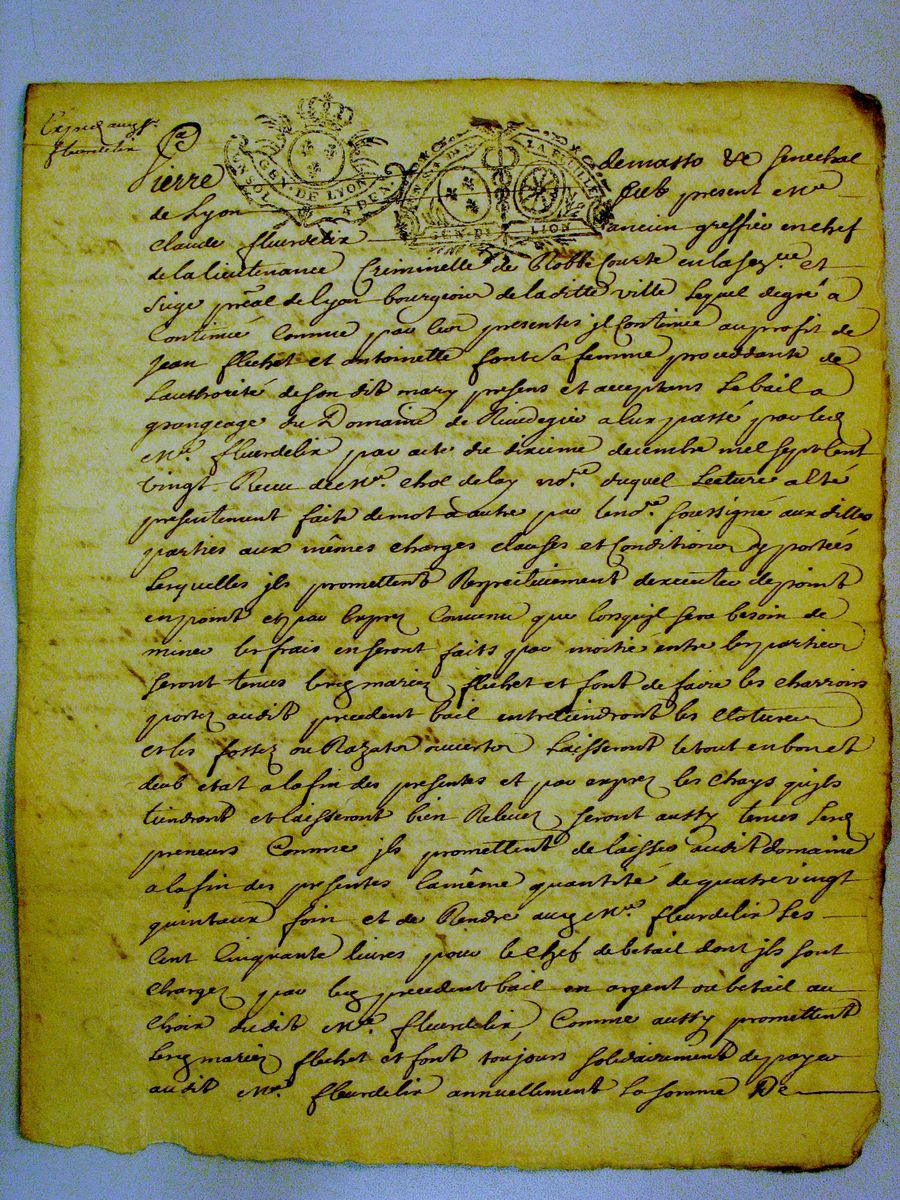 Expedié aud Sr.
fleurdelix
GEN DE LYON
UN SOL DEN
LA FEUILLE
GEN DE LION
Pierre demasso &c Senechal
de Lyon present Me
Claude fleurdelix ancien greffier en chef
de la lieutenance Criminelle de Robbe Courte en la et
Siege pnal de lyon bourgeois de laditte ville lequel degré a
Continué Comme par les presentes jl Continue au profit de
jean flechet et antoinette font Sa femme procedante de
Lauthorité de Son dit mary presens et acceptans Le bail a
grangeage du Domaine de a Eux passé par led
Me. fleurdelix par acte du dixieme decembre mil Sept Cent
vingt Receu de Me. no.re duquel Lecture a Eté
presentement faite de mot a autre par le nore. Soussigné aux dittes
parties aux mêmes charges clauses et Conditions y portées
Lesquelles jls promettent Respectivement dexecuter de point
en point et par Exprez Convenu que lorsquil Sera besoin de
miner les frais en Seront faits par moitié entre les parties
Seront tenus lesd mariez flechet et font de faire les charrois
portez audit precedent bail entretiendront les Clotures
et les fossez ou Razats ouverts Laisseront le tout en bon et
deub etat a la fin des presentes et par exprez les Chays quils
tiendront et laisseront bien Relevez Seront aussy tenus Lesd
preneurs Comme jls promettent de laisser audit domaine
a la fin des presentes la même quantité de quatre vingt
quintaux foin et de Rendre aud Me. fleurdelix Les
Cent Cinquante livres pour le Chef de betail dont jls Sont
Chargez par led precedent bail en argent ou betail au
Choix dudit Me. fleurdelix, Comme aussy promettent
Lesd mariez flechet et font toujours Solidairement de payer
audit Me. fleurdelix annuellement La Somme De